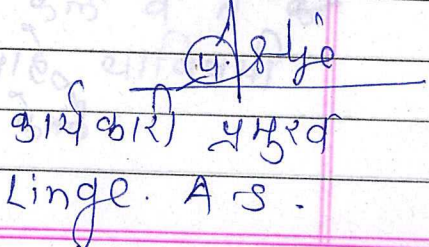 कार्यकारी प्रमुख
Linge. A S.